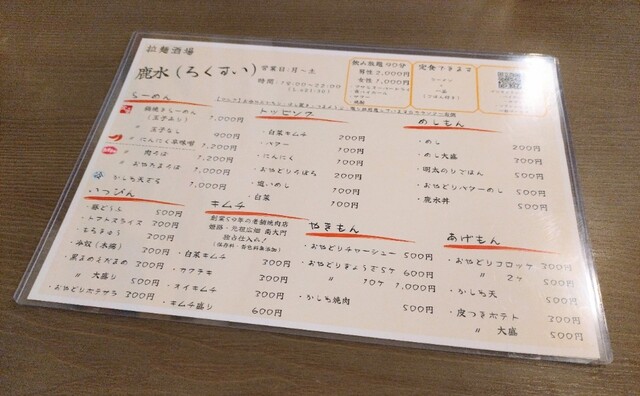 拉麺酒場
鹿水(ろくすい)
営業日:月〜土
時間:19:00〜22:00
(L.o21:30)
飲み放題90分
男性 2,000円
女性 1,000円
定食できます
ラーメン
+
一品
らーめん
鍋焼きらーめん
(玉子よし) 1,000円
〃 玉子なし 900円
〃 にんにく辛味噌 1,200円
〃 肉そば 1,200円
〃 おやどりそば 1,000円
かしわ天そば 1,000円
トッピング
・白菜キムチ 200円
・バター 100円
・にんにく 100円
・おやどりそぼろ 200円
・塩いめし 100円
・白菜 100円
めしもん
・めし 200円
・めし 大盛 300円
・明太のりごはん 500円
・おやどりバターめし 500円
・鹿水丼 500円
いっぴん
・豚どうふ 500円
・トマトスライス 300円
・もろきゅう 300円
・冷奴(木綿) 300円
・黒まめえだまめ 300円
〃 大盛り 500円
・おやどりポテサラ 300円
キムチ
創業50年の老舗焼肉店
姫路・元祖広畑 南大門
独占仕入れ!
(保存料・着色料無添加)
・白菜キムチ 300円
・カクテキ 300円
・オイキムチ 300円
・キムチ盛り 600円
やきもん
・おやどりチャーシュー 500円
・おやどりぎょうざ5ケ 600円
〃 10ケ 1,000円
・かしわ焼肉 500円
あげもん
・おやどりコロッケ 300円
〃 2ケ 500円
・かしわ天 500円
・皮つきポテト 300円
〃 大盛 500円